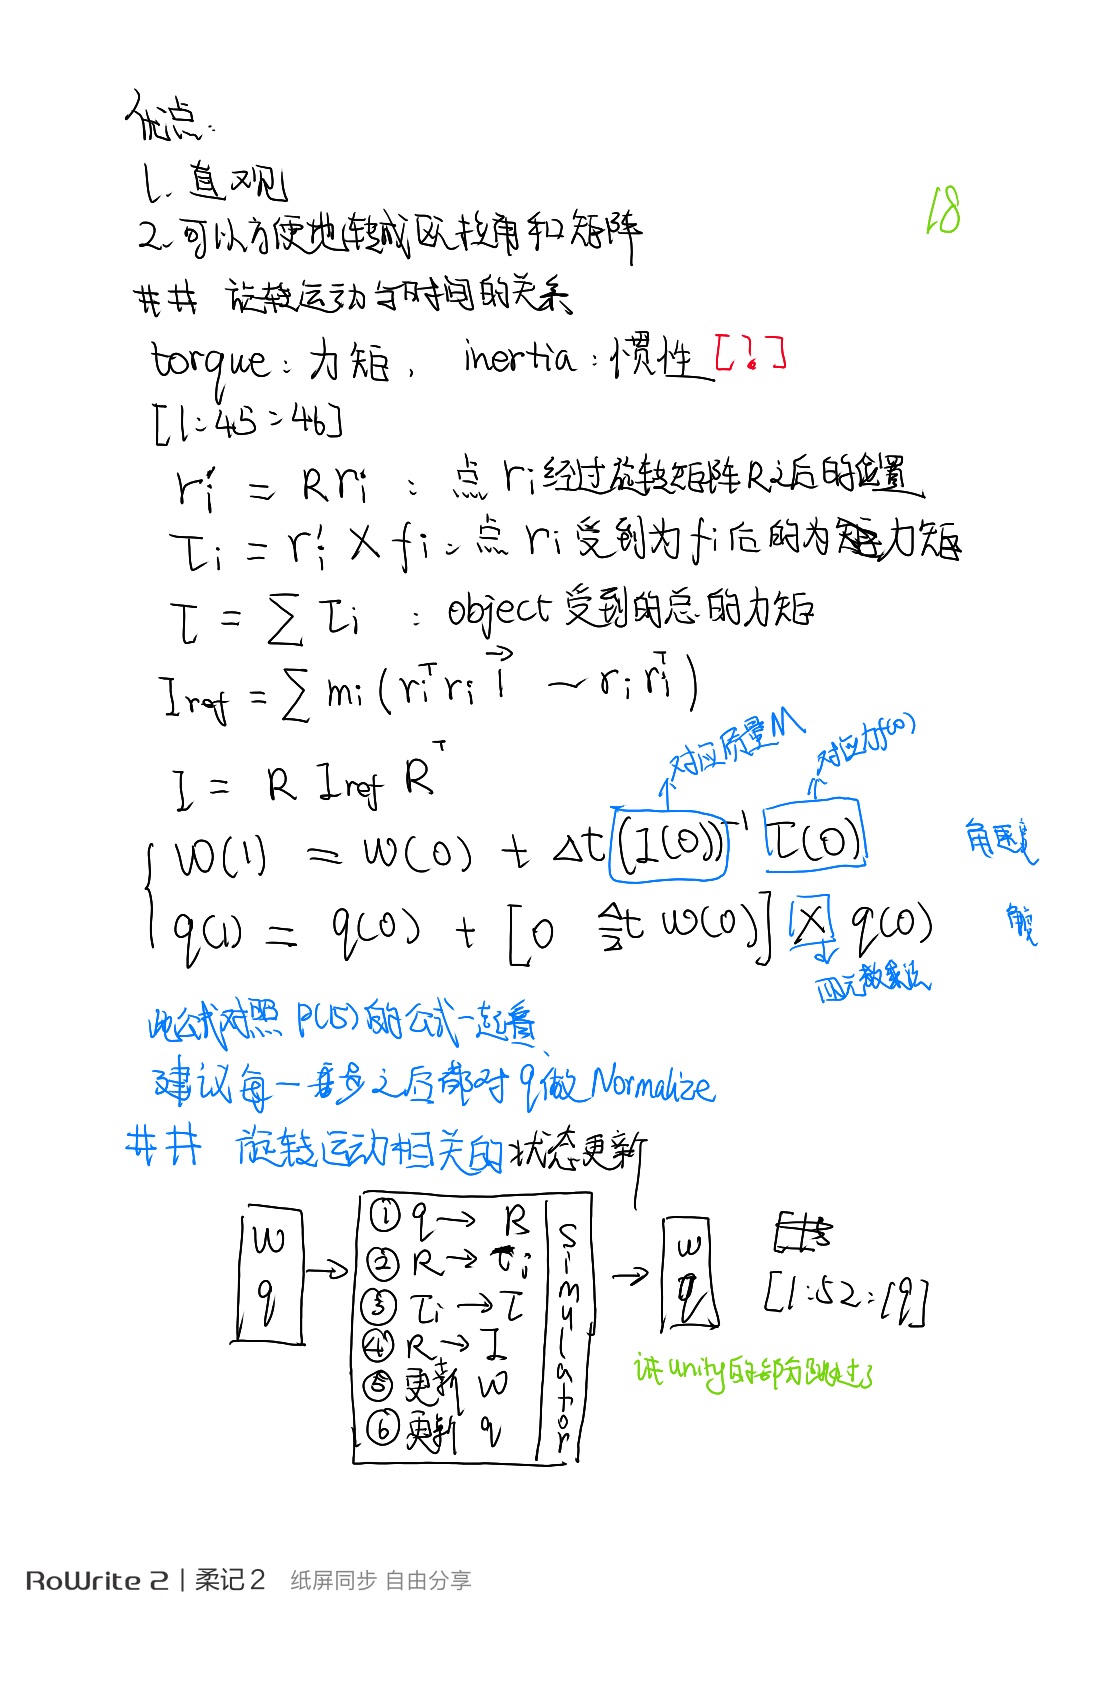 优点:
1. 直观
18
2. 可以方便地转成欧拉角和矩阵
## 旋转运动与时间的关系
torque: 力矩, inertia: 惯性 [?]
[1:45:46]
ri' = Rri : 点ri经过旋转矩阵R之后的位置
τi = ri' × fi : 点ri受到力fi后的力矩
τ = ∑ τi : object受到的总的力矩
Iref = ∑ mi(riᵀri 1 − ri riᵀ)
I = R Iref Rᵀ
对应质量M
对应力f(0)
w(1) = w(0) + Δt (I(0))⁻¹ τ(0)
角速度
q(1) = q(0) + [0 Δt/2 w(0)] × q(0)
角度
四元数乘法
此公式对照P(15)的公式一起看
建议每一步之后都对q做Normalize
## 旋转运动相关的状态更新
w
q
① q → R
② R → τi
③ τi → τ
④ R → I
⑤ 更新 w
⑥ 更新 q
Simulator
w
q
[1:52:19]
讲unity的部分跳过了
RoWrite 2 | 柔记 2 纸屏同步 自由分享